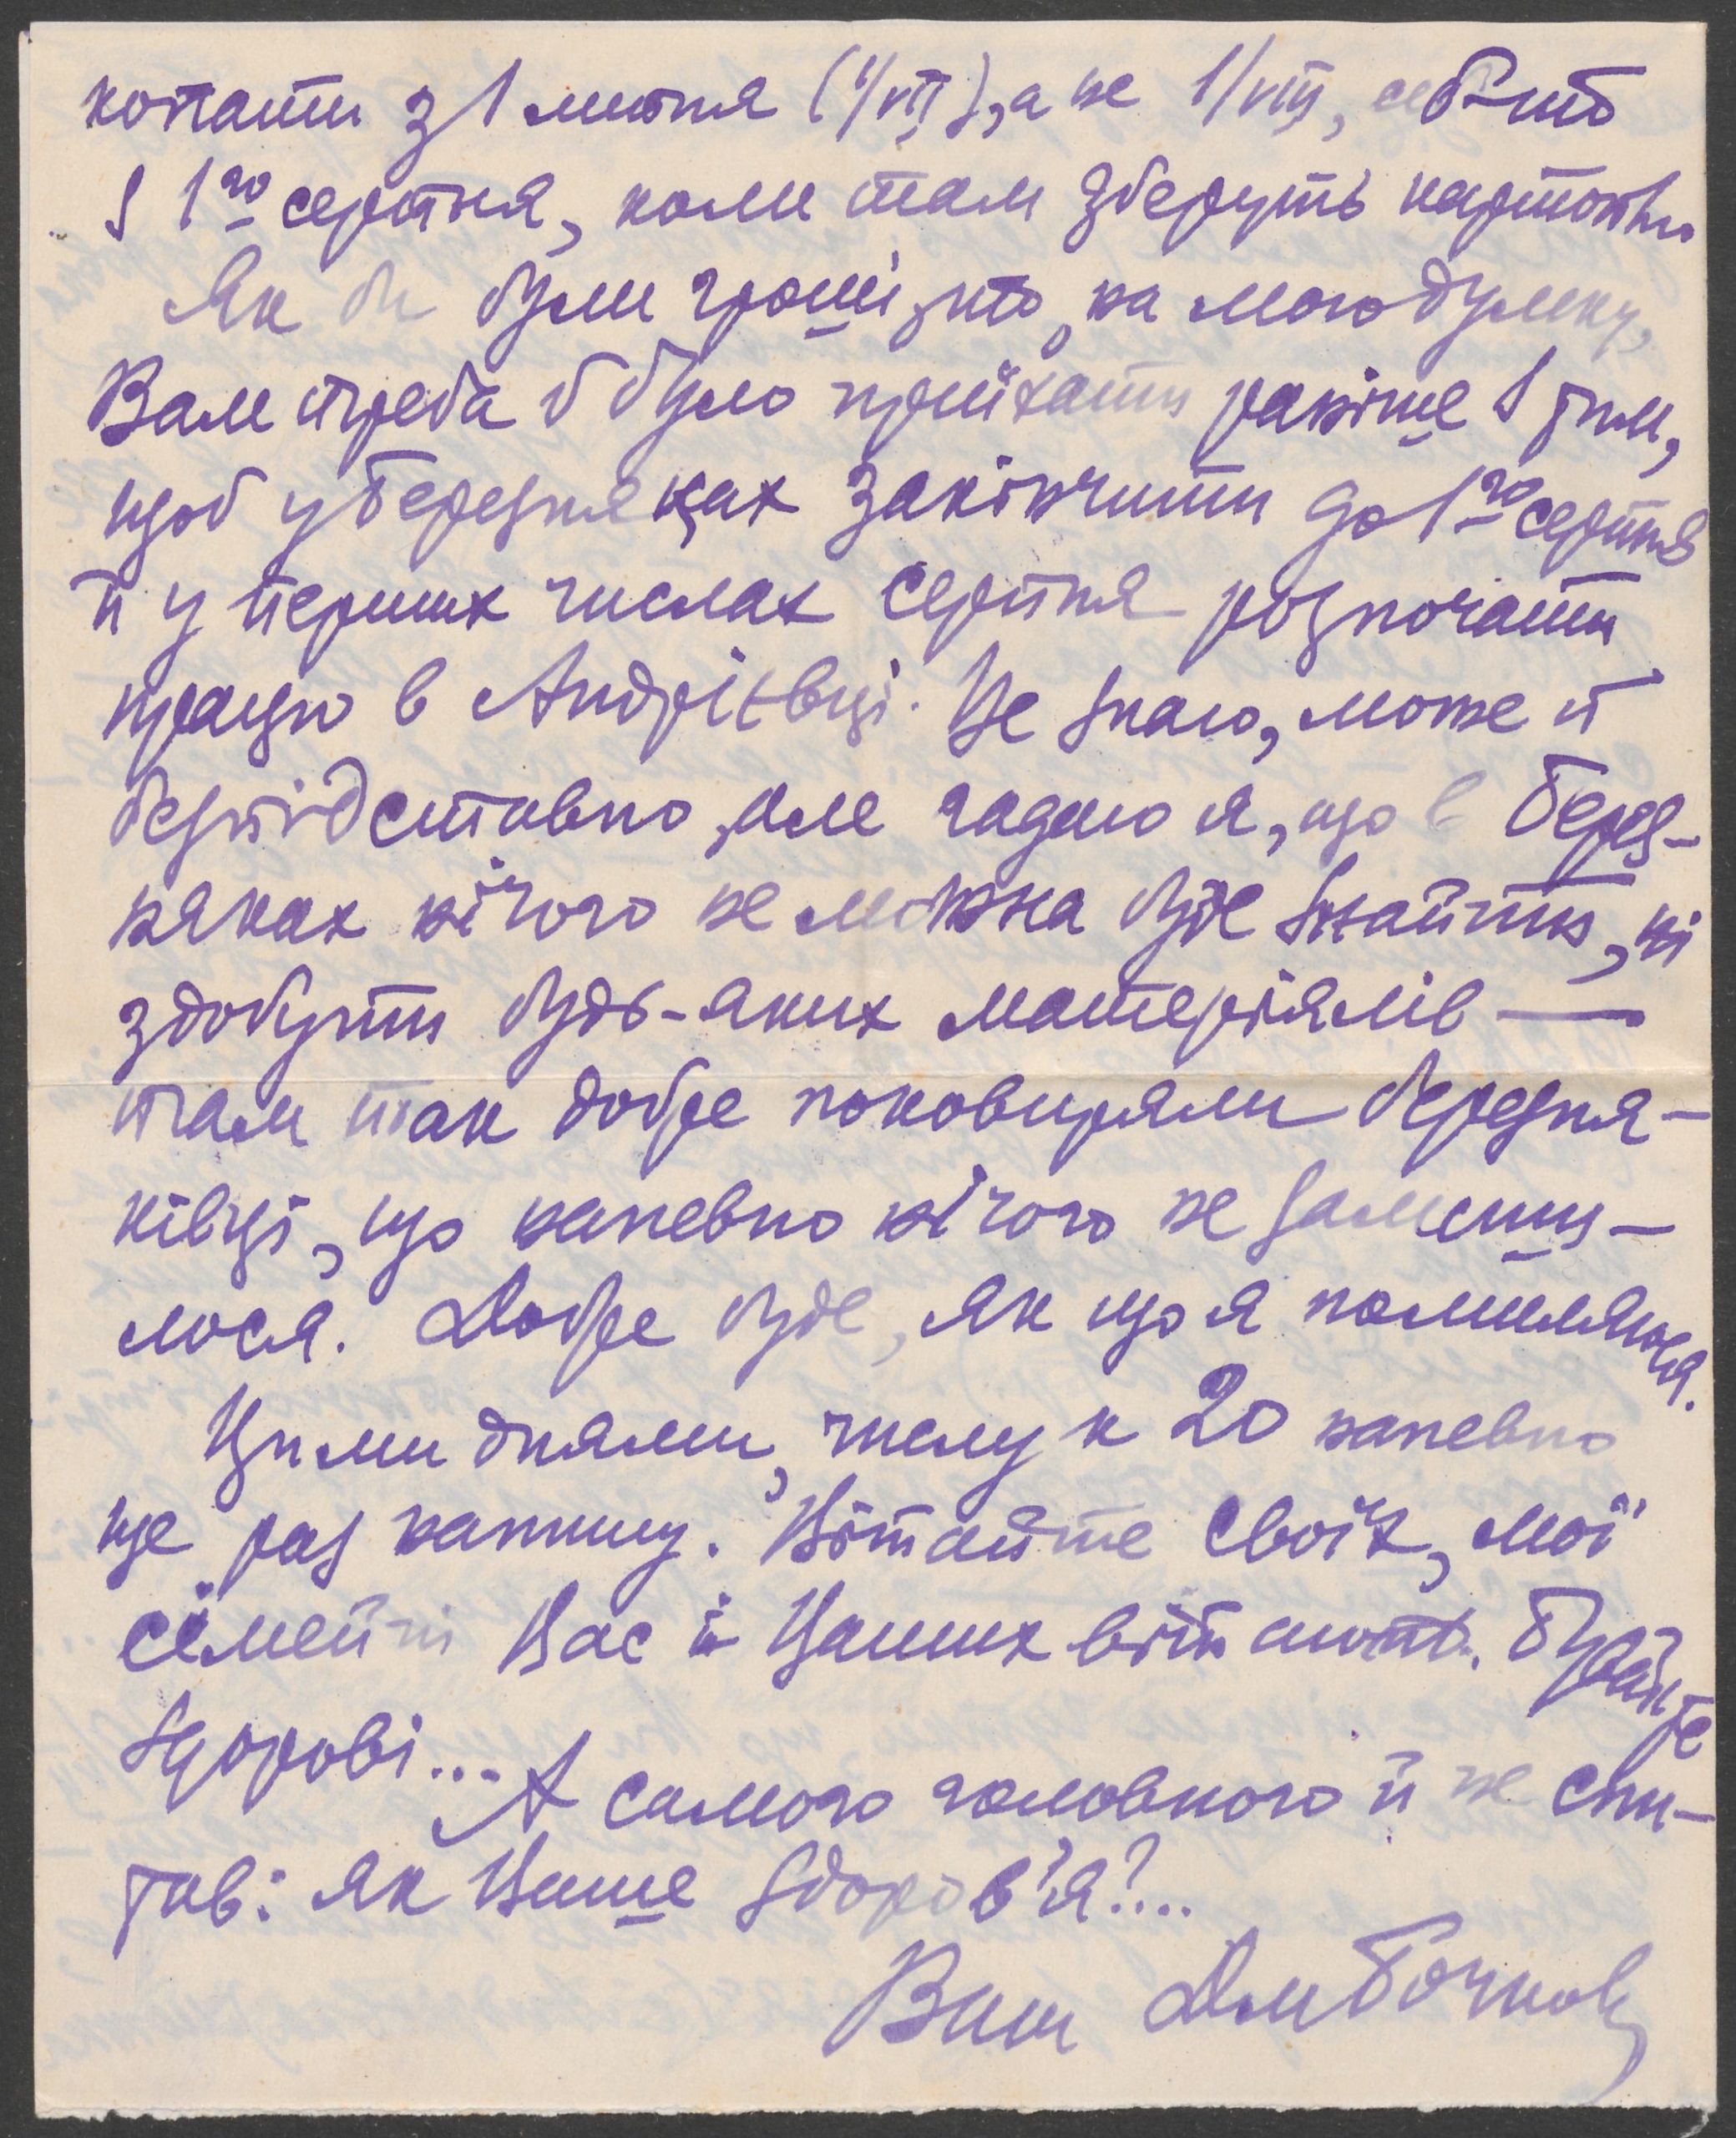 копати з 1 липня (1/VII), а не 1/VIII, себ-то
з 1го серпня, коли там зберуть картоплю
Як би були гроші, то, на мою думку,
Вам треба б було приїхати раніше з тим,
щоб у Березняках закінчити до 1го серпня
й у перших числах серпня розпочати
працю в Андріївці. Не знаю, може й
безпідставно, але гадаю я, що в Берез-
няках нічого не можна буде знайти, ні
здобути будь-яких матеріялів —
там так добре поковиряли березня-
ківці, що напевно нічого не залиши-
лося. Добре буде, як що я помиляюся.
Цими днями, числу к 20 напевно
ще раз напишу. Вітайте своїх, мої
сімейні Вас й Ваших вітають. Бувайте
здорові... А самого головного й не спи-
тав: як Ваше здоров'я?....
Ваш Дм Бочков